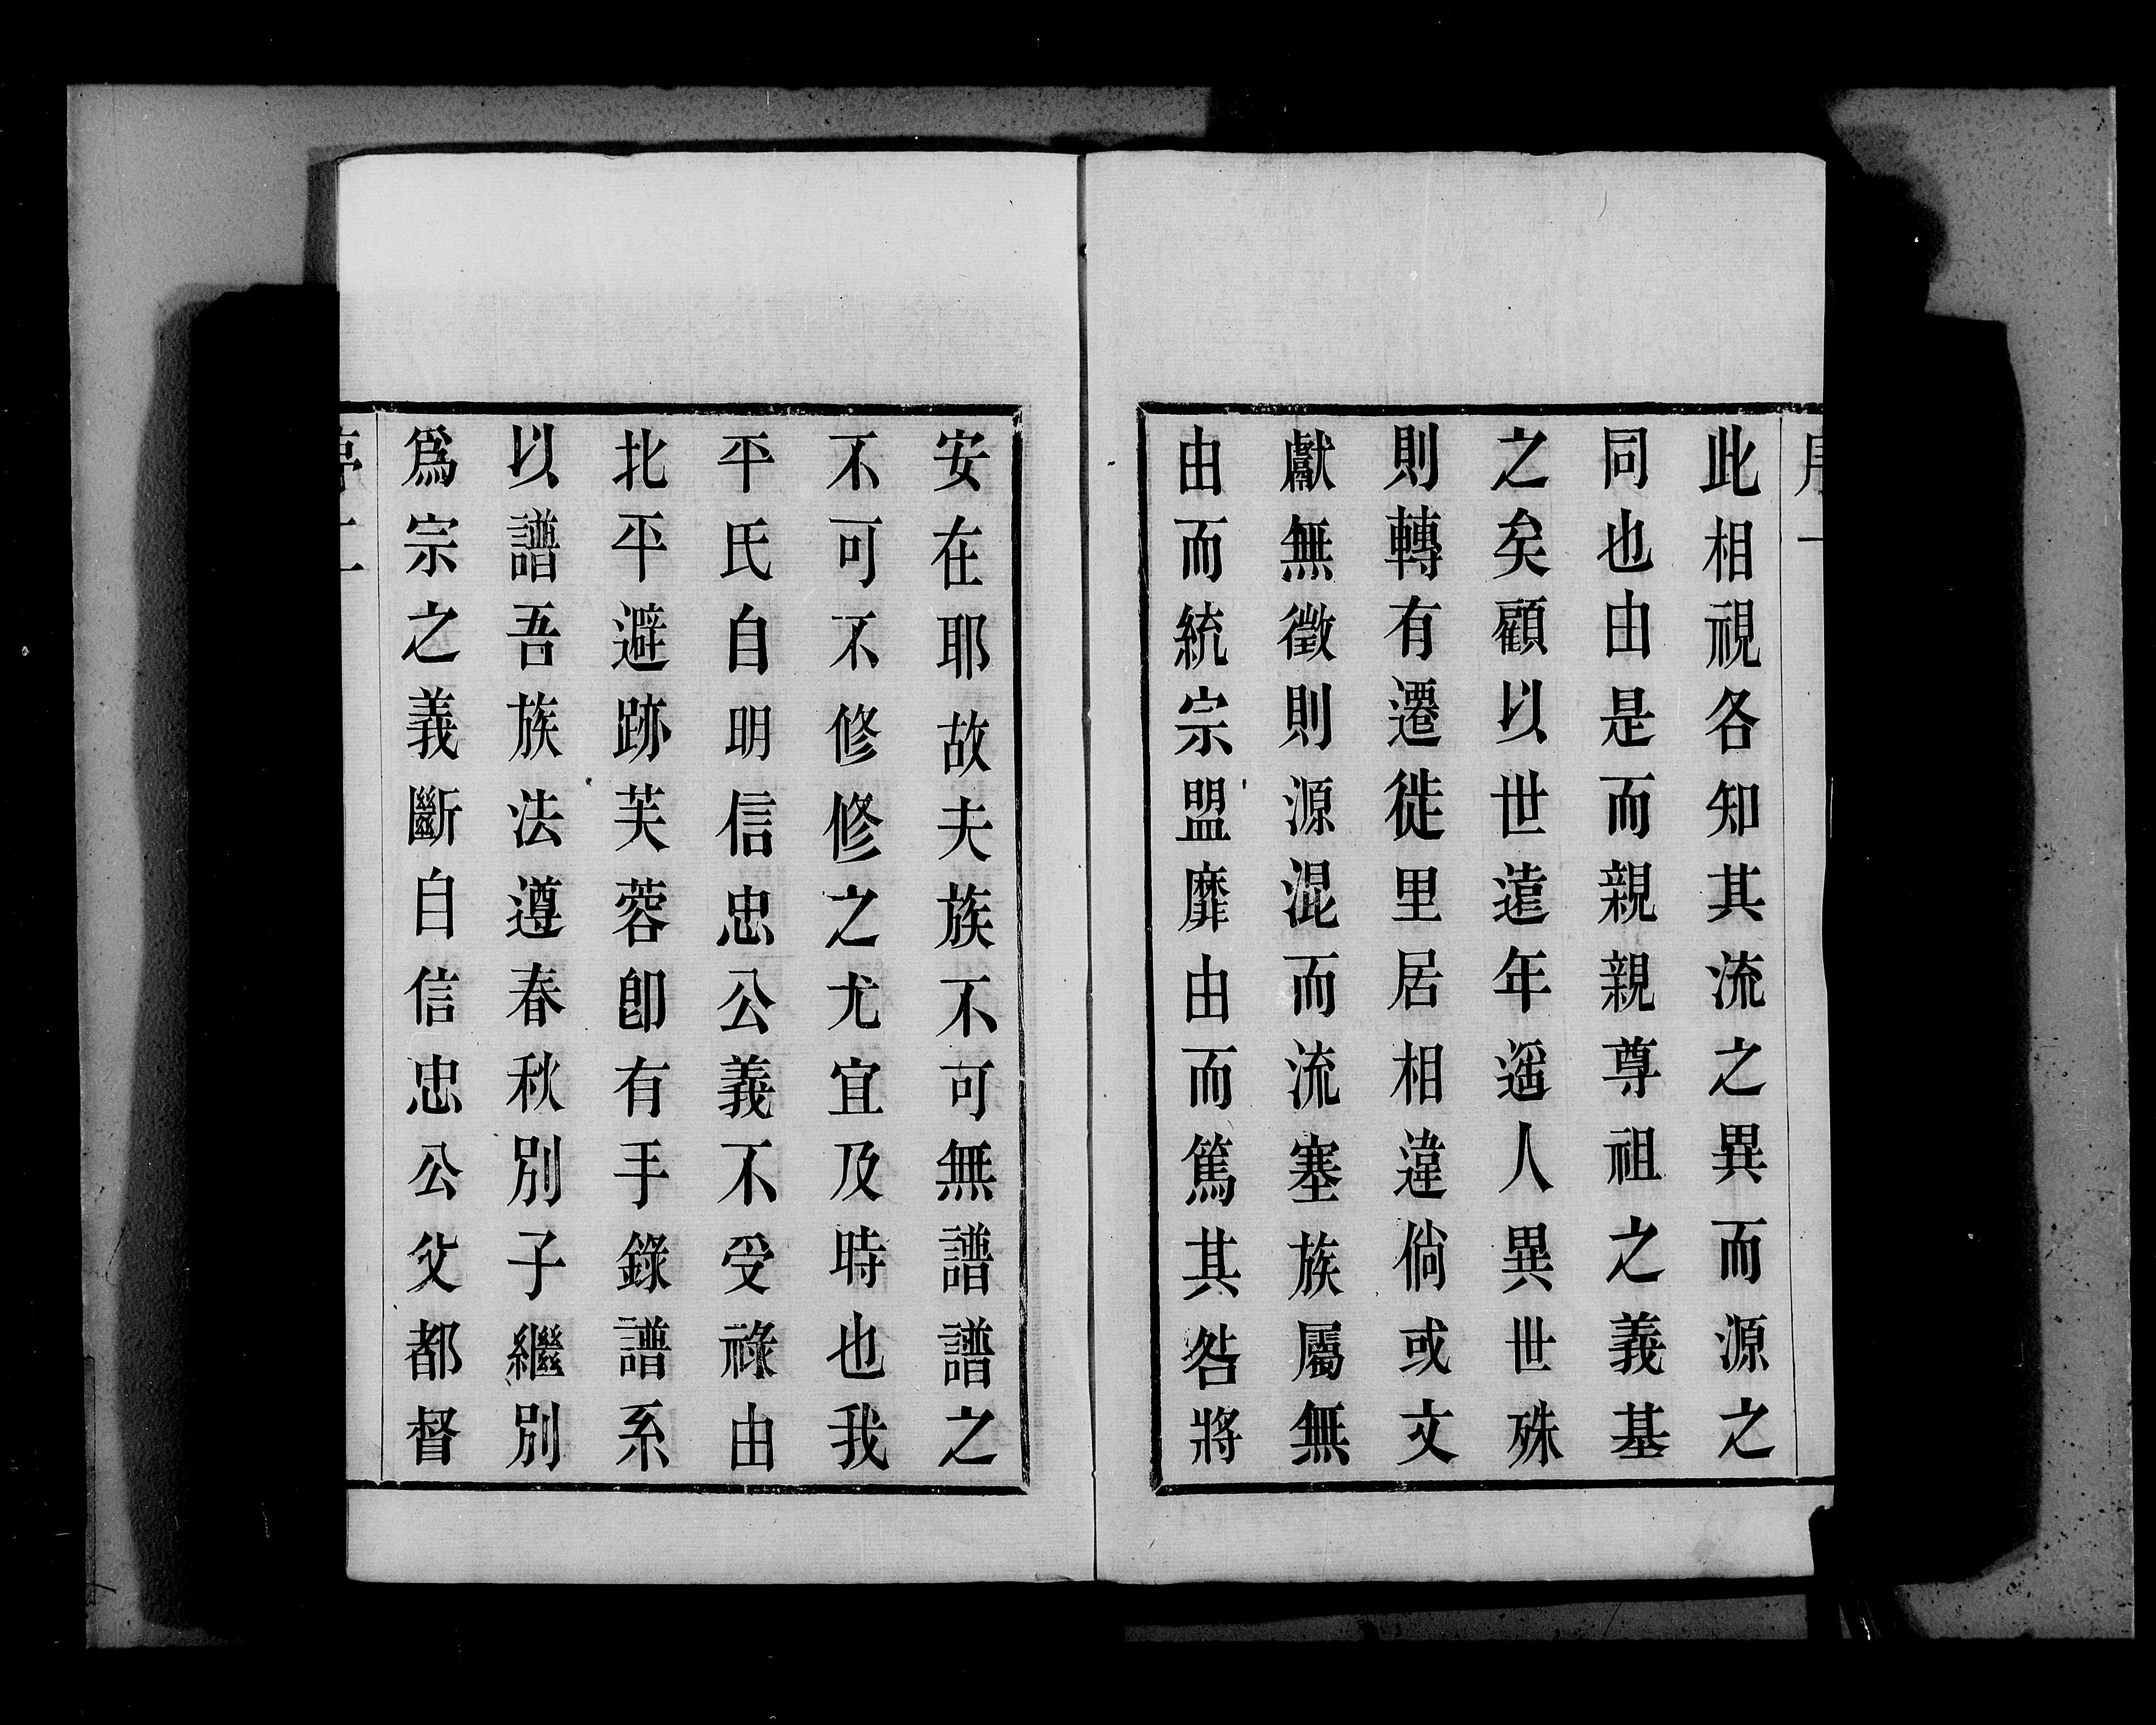 此相視各知其流之異而源之
同也由是而親親尊祖之義基
之矣顧以世遠年遥人異世殊
則轉有遷徙里居相違倘或文
獻無徵則源混而流塞族屬無
由而統宗盟靡由而篤其咎將
安在耶故夫族不可無譜譜之
不可不修修之尤宜及時也我
平氏自明信忠公義不受祿由
北平避跡芙蓉卽有手錄譜系
以譜吾族法遵春秋別子繼別
爲宗之義斷自信忠公父都督